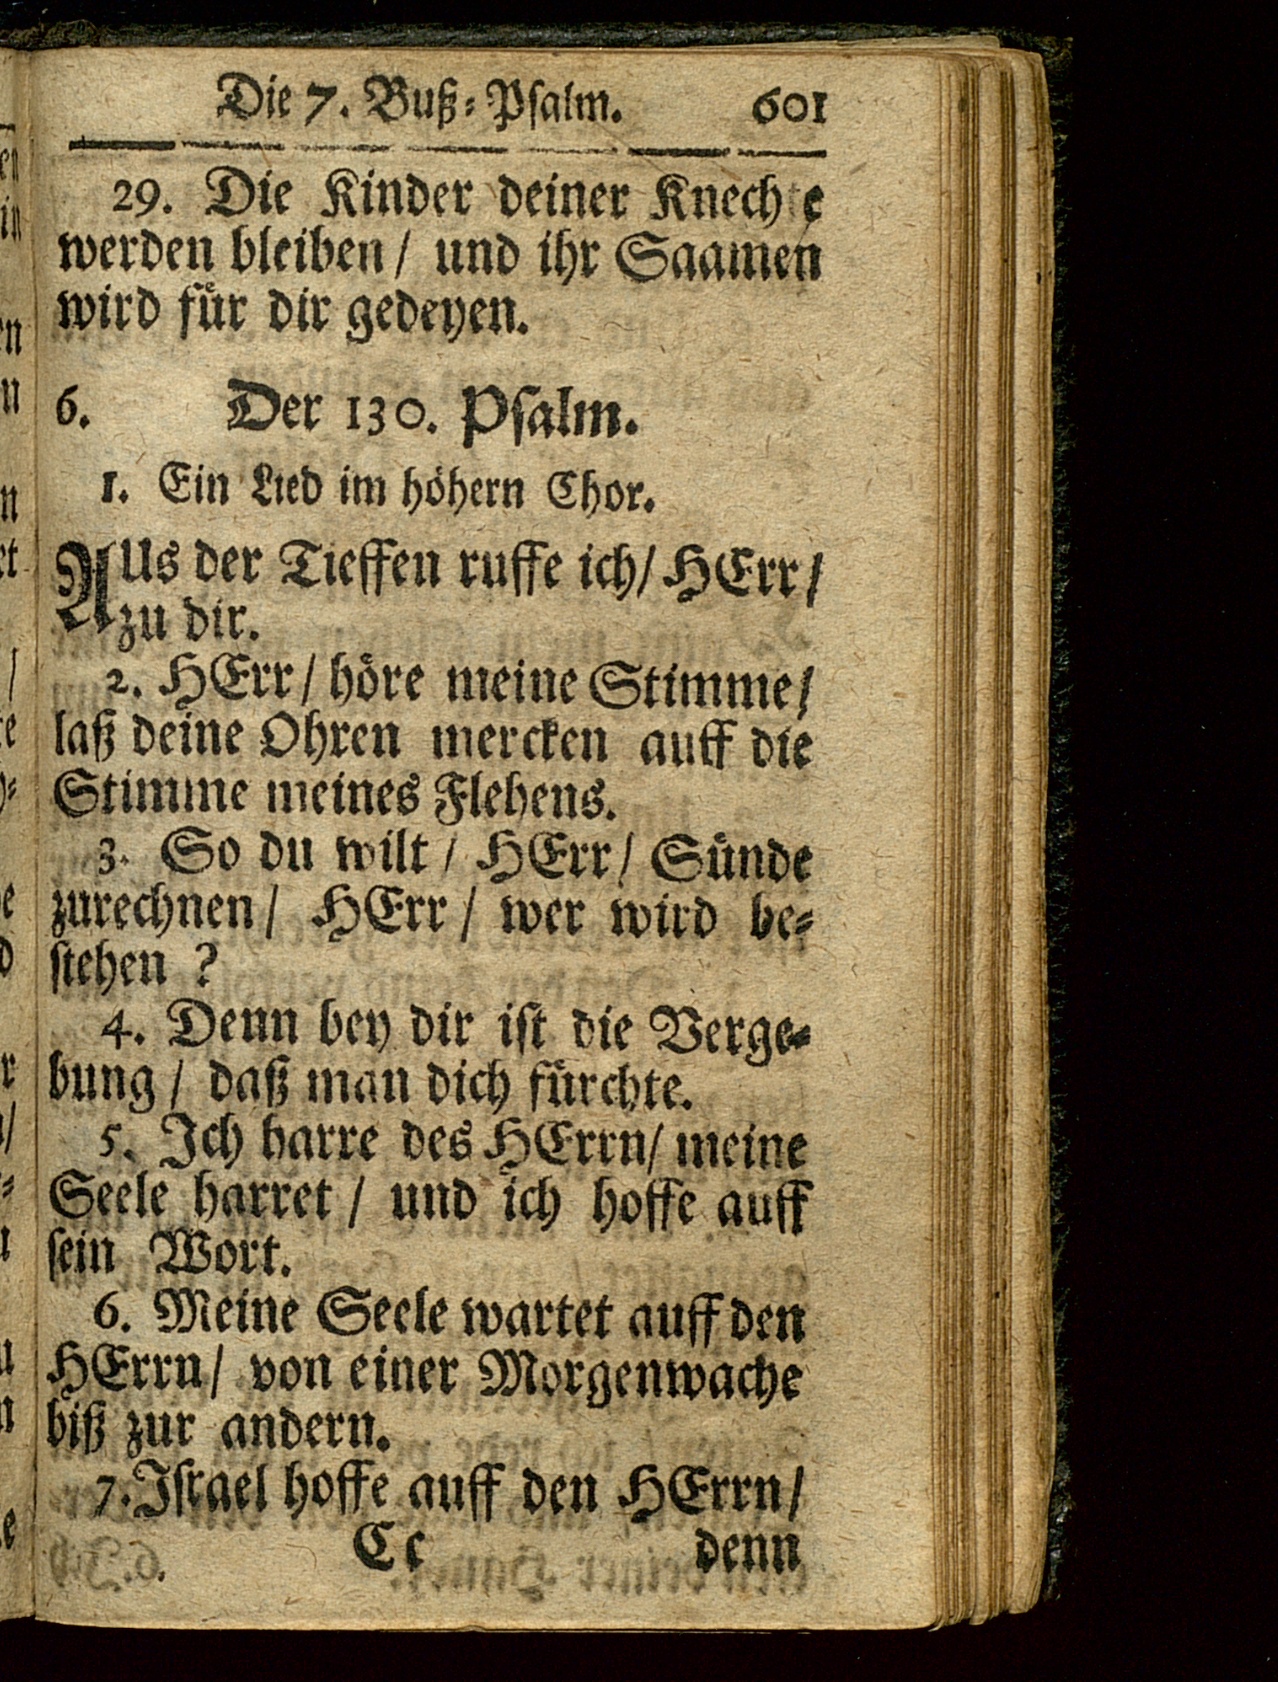 Die 7. Buß-Psalm. 601
29. Die Kinder deiner Knechte
werden bleiben / und ihr Saamen
wird fuͤr dir gedeyen.
6. Der 130. Psalm.
1. Ein Lied im hoͤhern Chor.
AUs der Tieffen ruffe ich / HErr /
zu dir.
2. HErr / hoͤre meine Stimme /
laß deine Ohren mercken auff die
Stimme meines Flehens.
3. So du wilt / HErr / Suͤnde
zurechnen / HErr / wer wird be-
stehen ?
4. Denn bey dir ist die Verge-
bung / daß man dich fuͤrchte.
5. Ich harre des HErrn / meine
Seele harret / und ich hoffe auff
sein Wort.
6. Meine Seele wartet auff den
HErrn / von einer Morgenwache
biß zur andern.
7. Israel hoffe auff den HErrn /
Cc denn